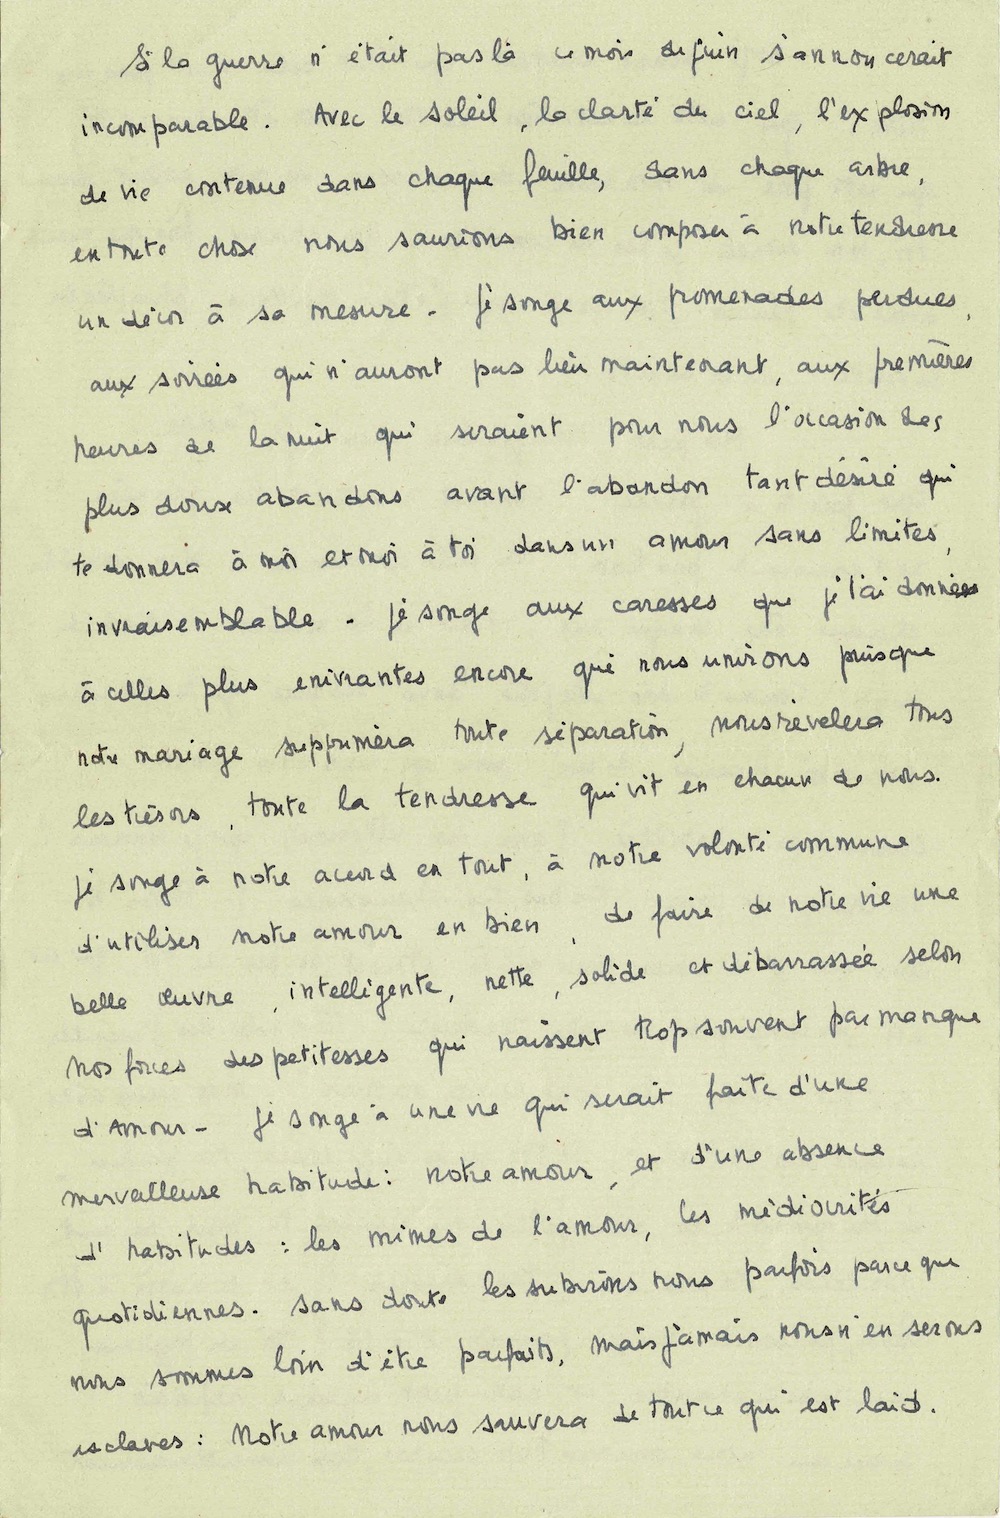 Si la guerre n'était pas là ce mois de juin s'annoncerait
incomparable. Avec le soleil, la clarté du ciel, l'explosion
de vie contenue dans chaque feuille, dans chaque arbre,
en toute chose nous saurions bien composer à notre tendresse
un décor à sa mesure - Je songe aux promenades perdues,
aux soirées qui n'auront pas lieu maintenant, aux premières
heures de la nuit qui seraient pour nous l'occasion des
plus doux abandons avant l'abandon tant désiré qui
te donnera à moi et moi à toi dans un amour sans limites,
invraisemblable - Je songe aux caresses que je t'ai données
à celles plus enivrantes encore qui nous unirons puisque
notre mariage supprimera toute séparation, nous révèlera tous
les trésors, toute la tendresse qui vit en chacun de nous.
Je songe à notre accord en tout, à notre volonté commune
d'utiliser notre amour en bien, de faire de notre vie une
belle œuvre, intelligente, nette, solide et débarrassée selon
nos forces des petitesses qui naissent trop souvent par manque
d'Amour - Je songe à une vie qui serait faite d'une
merveilleuse habitude : notre amour, et d'une absence
d'habitudes : les mimes de l'amour, les médiocrités
quotidiennes. Sans doute les subirons nous parfois parce que
nous sommes loin d'être parfaits, mais jamais nous n'en serons
esclaves : Notre amour nous sauvera de tout ce qui est laid.